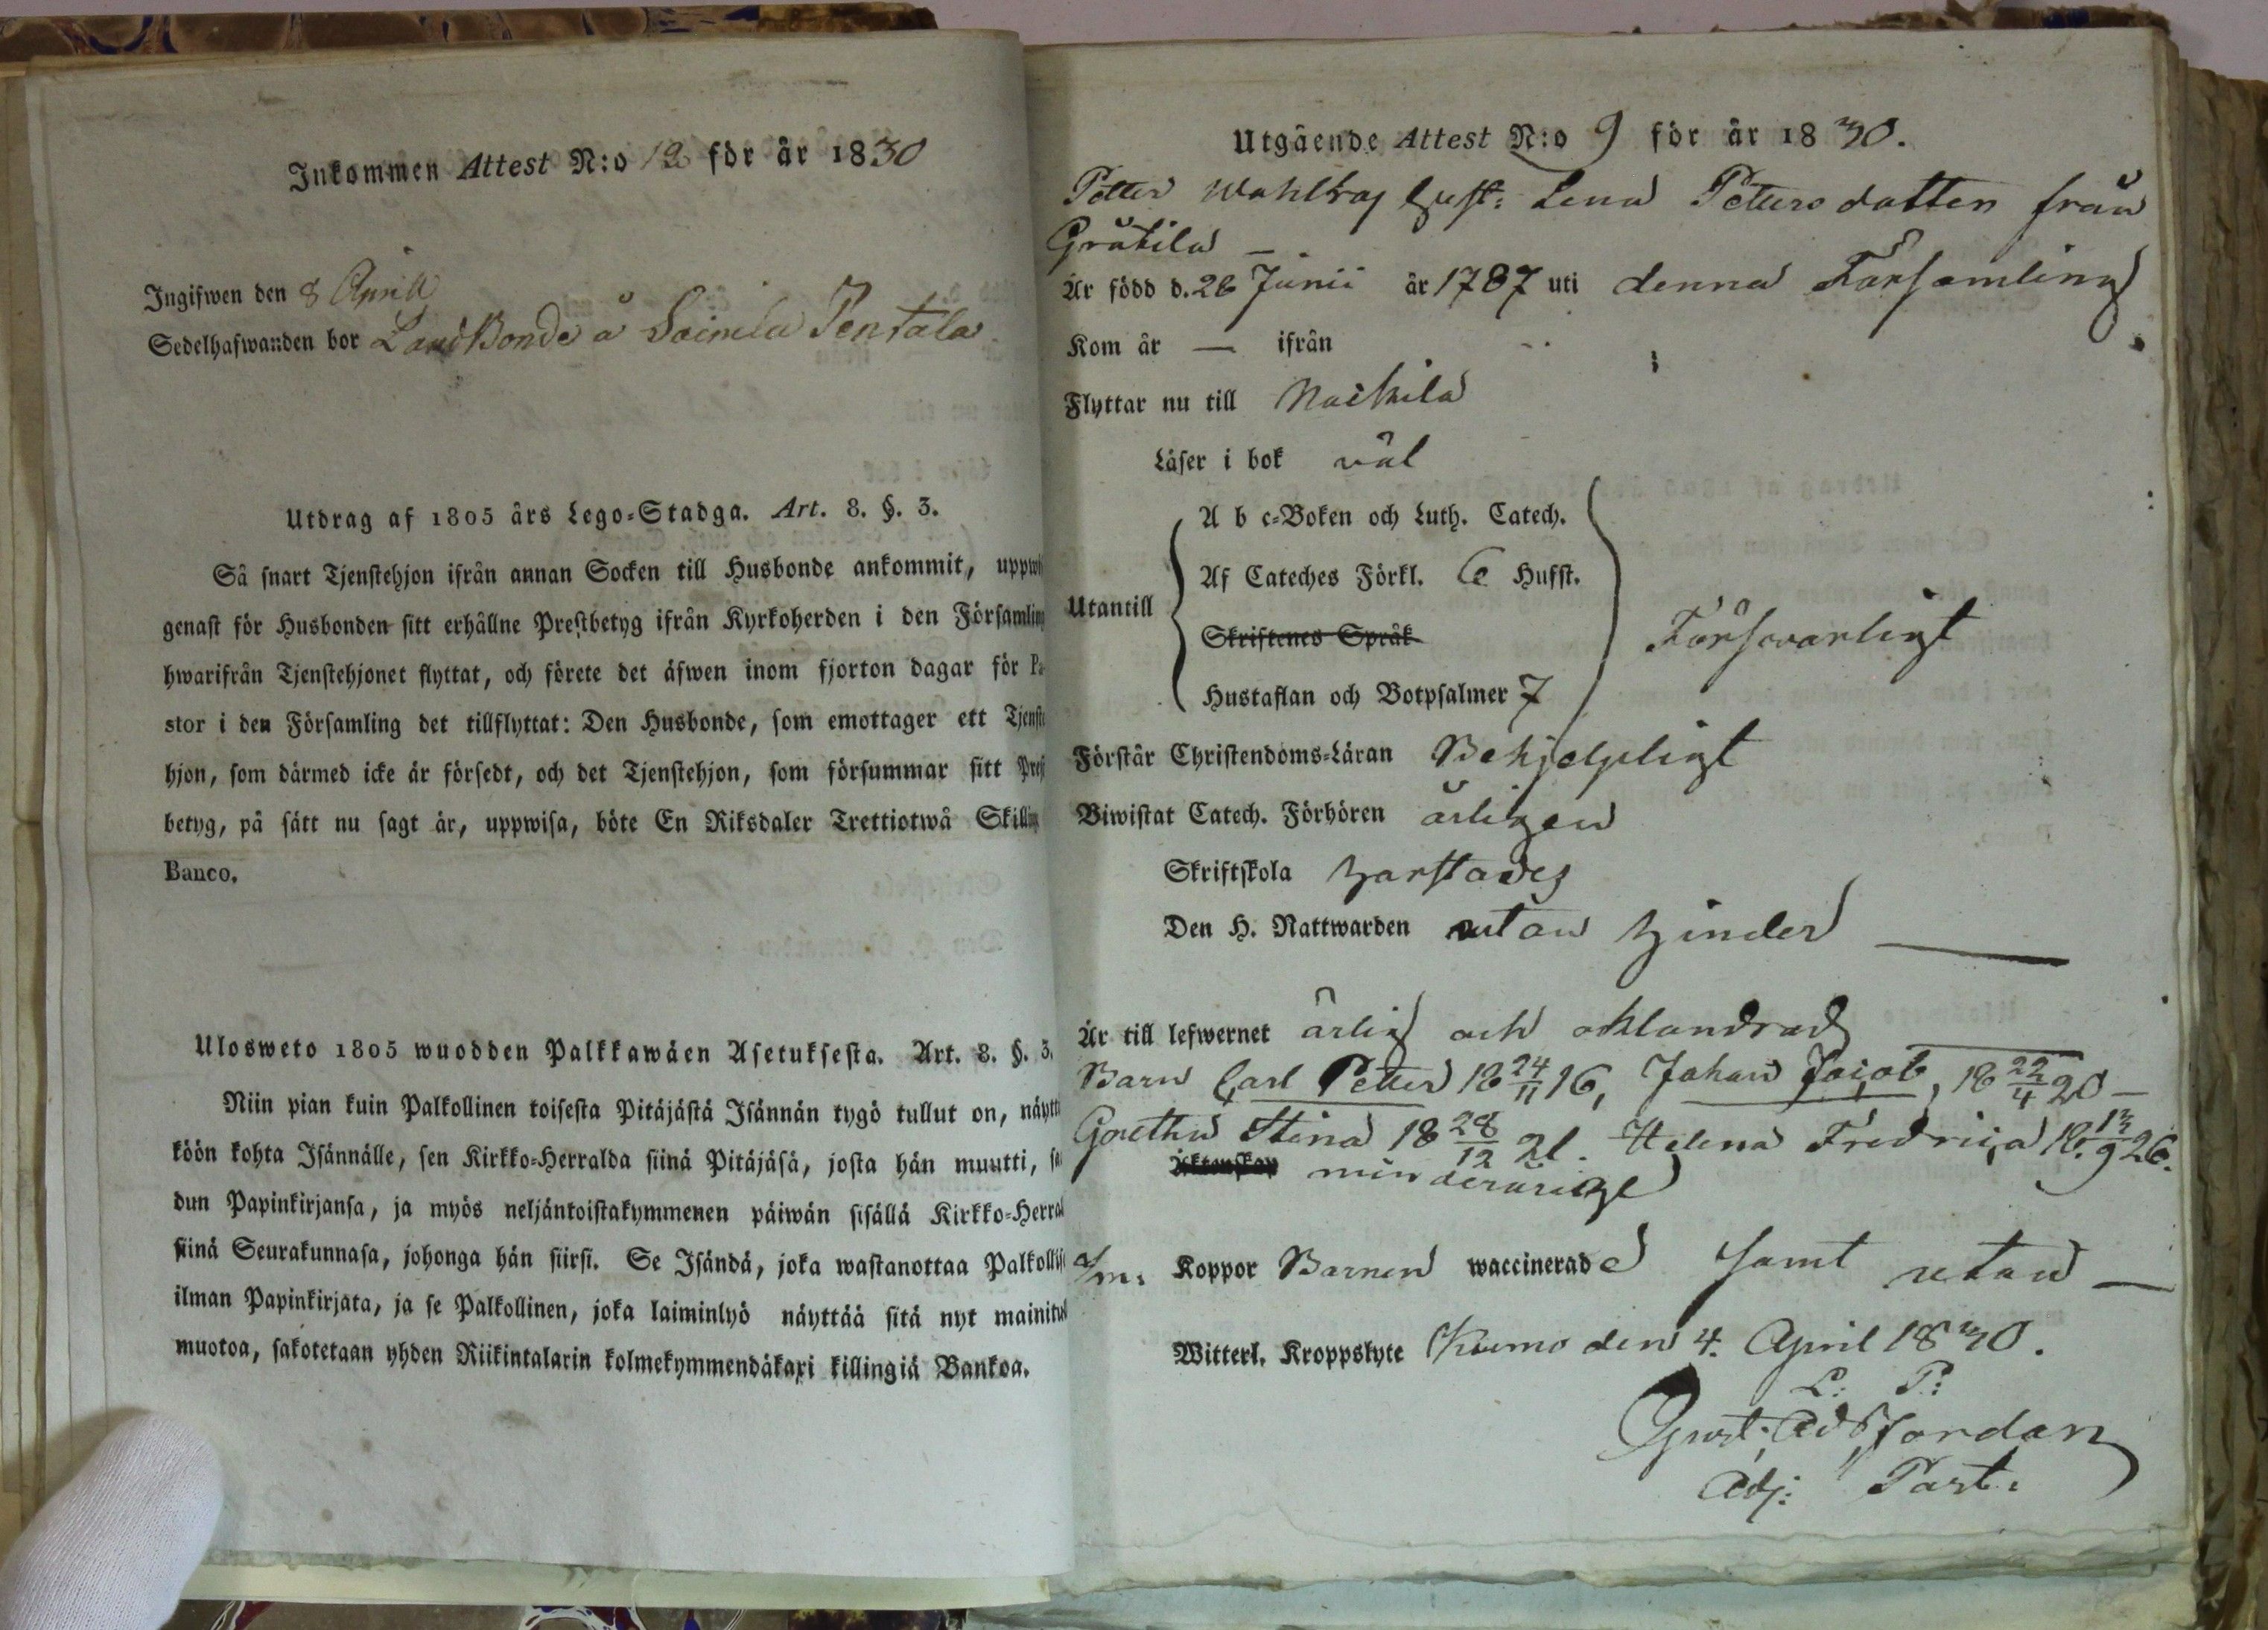 Inkommen Attest N:o 12 för år 1830
Ingifwen den 8 Aprill
Sedelhafwanden bor LandBonde å Soinila Pentala
Utdrag af 1805 års Lego-Stadga. Art. 8. §. 3.
Så snart Tjenstehjon ifrån annan Socken till Husbonde ankommit, uppwi
genast för Husbonden sitt erhållne Prestbetyg ifrån Kyrkoherden i den Församling
hwarifrån Tjenstehjonet flyttat, och förete det äfwen inom fjorton dagar för Pa
stor i den Församling det tillflyttat: Den Husbonde, som emottager ett Tjenste
hjon, som därmed icke är försedt, och det Tjenstehjon, som försummar sitt Prest
betyg, på sätt nu sagt är, uppwisa, böte En Riksdaler Trettiotwå Skilling
Banco.
Ulosweto 1805 wuodden Palkkawäen Asetuksesta. Art. 8. §. 3.
Niin pian kuin Palkollinen toisesta Pitäjästä Isännän tygö tullut on, näyttä
köön kohta Isännälle, sen Kirkko-Herralda siinä Pitäjäsä, josta hän muutti, sa
dun Papinkirjansa, ja myös neljäntoistakymmenen päiwän sisällä Kirkko-Herral
siinä Seurakunnasa, johonga hän siirsi. Se Isändä, joka wastanottaa Palkollis
ilman Papinkirjata, ja se Palkollinen, joka laiminlyö näyttää sitä nyt mainitul
muotoa, sakotetaan yhden Riikintalarin kolmekymmendäkaxi killingiä Bankoa.
Utgående Attest N:o 9 för år 1830.
Petter Wahlroos Hust: Lena Pettersdotter från
Gråtila –
Är född d. 26 Junii år 1787 uti denna Församling
Kom år — ifrån
Flyttar nu till Nackila
Läser i bok väl
A b c-Boken och Luth. Catech.
Af Cateches Förkl. 6 Hufst.
Utantill
Skriftenes Språk
Försvarligt
Hustaflan och Botpsalmer 7
Förstår Christendoms-Läran Behjelpligt
Biwistat Catech. Förhören årligen
Skriftskola
Den H. Nattwarden utan hinder —
Är till lefwernet ärlig och oklandrad
Barn Carl Petter 18 24/11 16, Johan Jacob, 18 22/4 20 –
Gretha Stina 18 28/12 21. Helena Fredrica 18 13/9 26.
Äktenskap minderårige
Koppor Barnen waccinerade samt utan —
Witterl. Kroppslyte Kumo den 4. April 1830.
L: P:
Gust: Ad Jordan
Adj: Past: